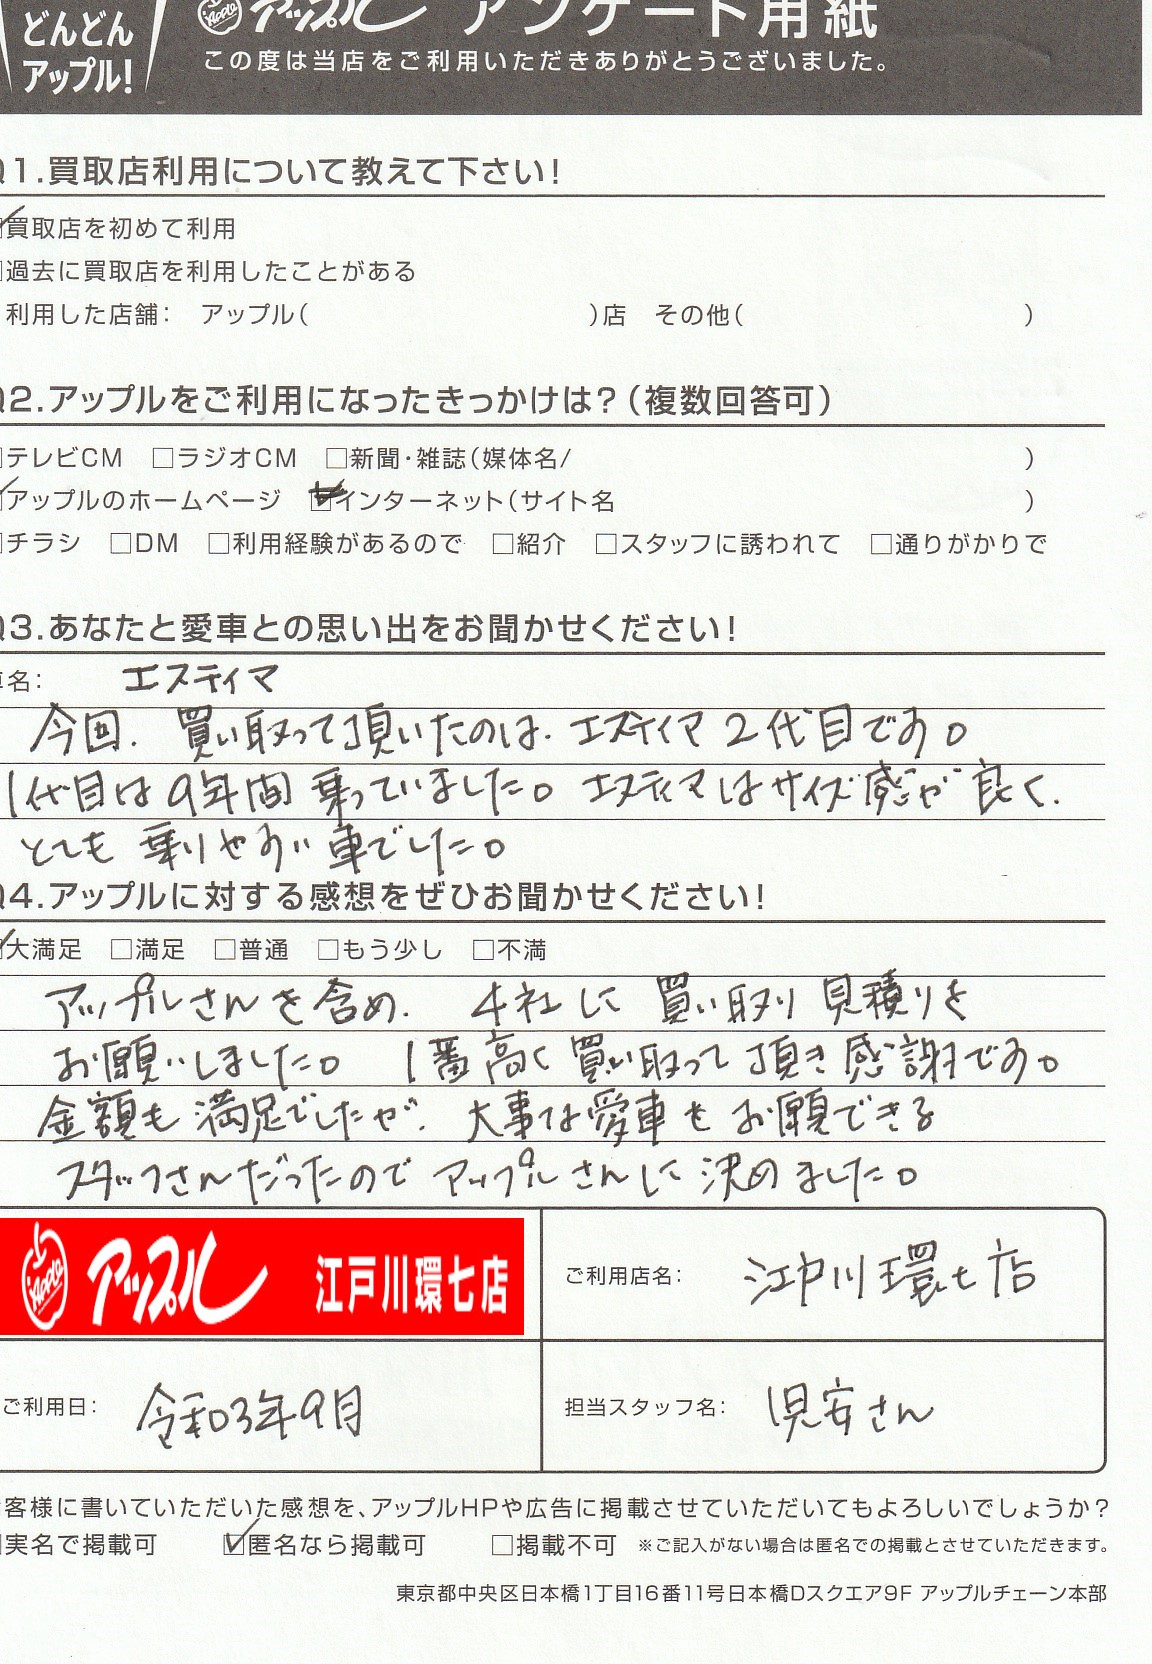 どんどん
アップル!
Apple アップル アンケート用紙
この度は当店をご利用いただきありがとうございました。
Q1.買取店利用について教えて下さい!
☑買取店を初めて利用
□過去に買取店を利用したことがある
利用した店舗: アップル( )店 その他( )
Q2.アップルをご利用になったきっかけは?(複数回答可)
□テレビCM □ラジオCM □新聞・雑誌(媒体名/ )
☑アップルのホームページ ☑インターネット(サイト名 )
□チラシ □DM □利用経験があるので □紹介 □スタッフに誘われて □通りがかりで
Q3.あなたと愛車との思い出をお聞かせください!
車名: エスティマ
今回、買い取って頂いたのは、エスティマ2代目です。
1代目は9年間乗っていました。エスティマはサイズ感が良く、
とても乗りやすい車でした。
Q4.アップルに対する感想をぜひお聞かせください!
☑大満足 □満足 □普通 □もう少し □不満
アップルさんを含め、4社に買い取り見積りを
お願いしました。1番高く買い取って頂き感謝です。
金額も満足でしたが、大事な愛車をお願できる
スタッフさんだったのでアップルさんに決めました。
Apple アップル 江戸川環七店
ご利用店名: 江戸川環七店
ご利用日: 令和03年9月
担当スタッフ名: 児安さん
お客様に書いていただいた感想を、アップルHPや広告に掲載させていただいてもよろしいでしょうか?
□実名で掲載可 ☑匿名なら掲載可 □掲載不可 ※ご記入がない場合は匿名での掲載とさせていただきます。
東京都中央区日本橋1丁目16番11号日本橋Dスクエア9F アップルチェーン本部